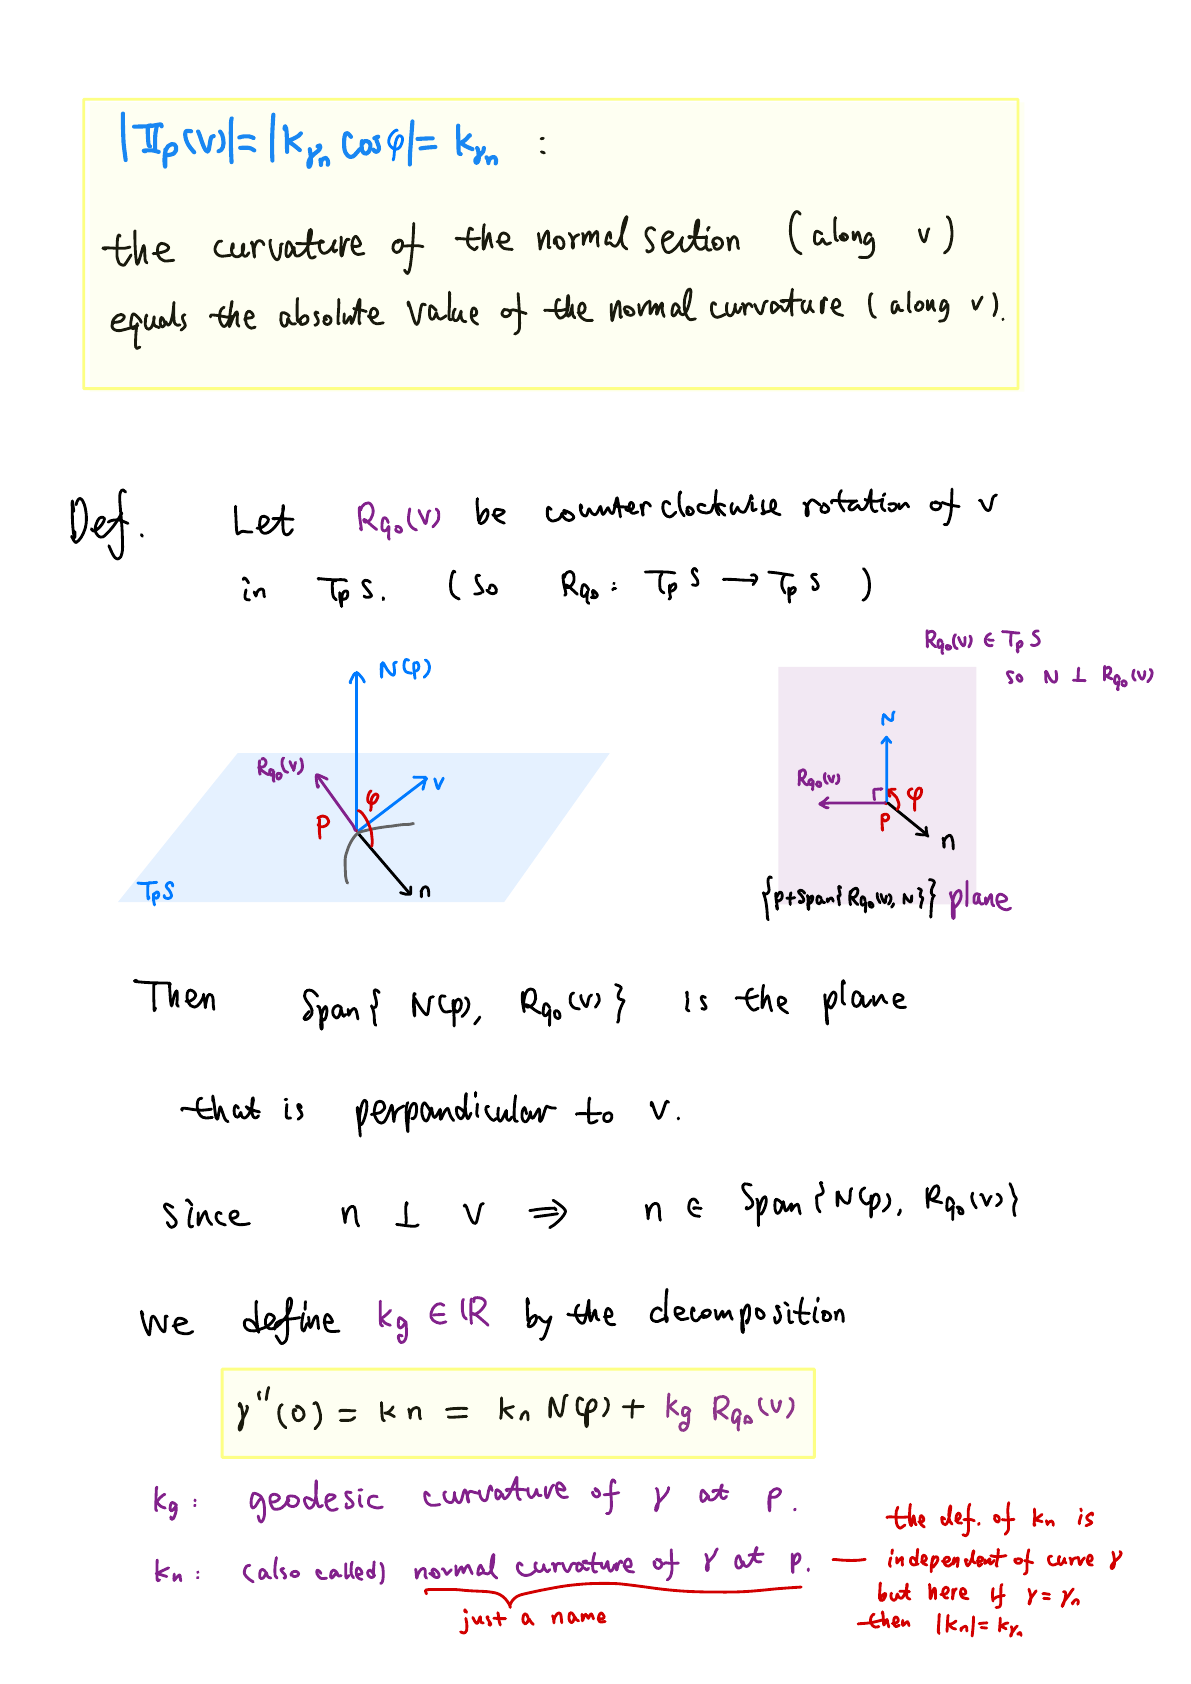 |IIp(v)| = |kγn cosφ| = kγn :
the curvature of the normal section (along v)
equals the absolute value of the normal curvature (along v).
Def. Let R90(v) be counter clockwise rotation of v
in TpS. (so R90 : TpS → TpS )
R90(v) ∈ TpS
so N ⊥ R90(v)
N(p)
R90(v)
v
φ
P
n
TpS
N
R90(v)
φ
P
n
{p+span{R90(v), N}} plane
Then Span{ N(p), R90(v) } is the plane
that is perpandicular to v.
since n ⊥ v ⇒ n ∈ Span{N(p), R90(v)}
we define kg ∈ ℝ by the decomposition
γ''(0) = kn = kn N(p) + kg R90(v)
kg : geodesic curvature of γ at p.
kn : (also called) normal curvature of γ at p. — the def. of kn is
independent of curve γ
but here if γ = γn
then |kn| = kγn
just a name